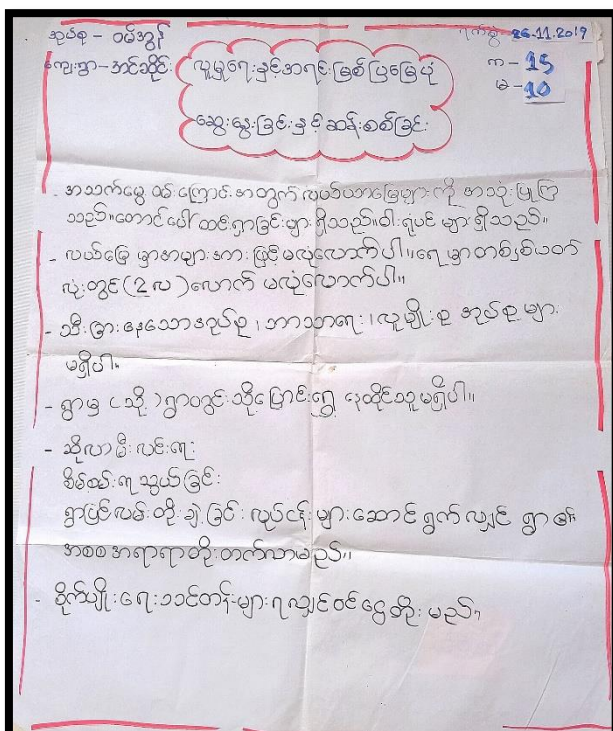 အုပ်စု - ဝမ်အွန်
ရက်စွဲ - 26.11.2019
ကျေးရွာ - အင်ဆိုင်း
လူမှုရေးနှင့်အရင်းမြစ်ပြမြေပုံ
က - 15
မ - 10
ဆွေးနွေးခြင်းနှင့်ဆန်းစစ်ခြင်း
- အသက်မွေးဝမ်းကြောင်းအတွက် လယ်ယာမြေများကို အသုံးပြုကြ
သည်။တောင်ပေါ်ထင်းရှာခြင်းများရှိသည်။ဝါးရုပင်များရှိသည်။
- လယ်မြေမှာအများအားဖြင့်မလုံလောက်ပါ။ရေမှာတစ်နှစ်ပတ်
လုံးတွင်(2လ)လောက် မလုံလောက်ပါ။
- သီးခြားနေသောအုပ်စု၊ ဘာသာရေး၊ လူမျိုးစု အုပ်စုများ
မရှိပါ။
- ရွာမှ (သို့) ရွာတွင်းသို့ပြောင်းရွှေ့ နေထိုင်သူမရှိပါ။
- ဆိုလာမီးလင်းရေး
စိမ်စမ်းရေသွယ်ခြင်း
ရွာပြင်လမ်းတိုးချဲ့ခြင်း လုပ်ငန်းများဆောင်ရွက်လျှင် ရွာ၏
အစစအရာရာတိုးတက်လာမည်။
- စိုက်ပျိုးရေးသင်တန်းများရလျှင်ဝင်ငွေတိုးမည်။